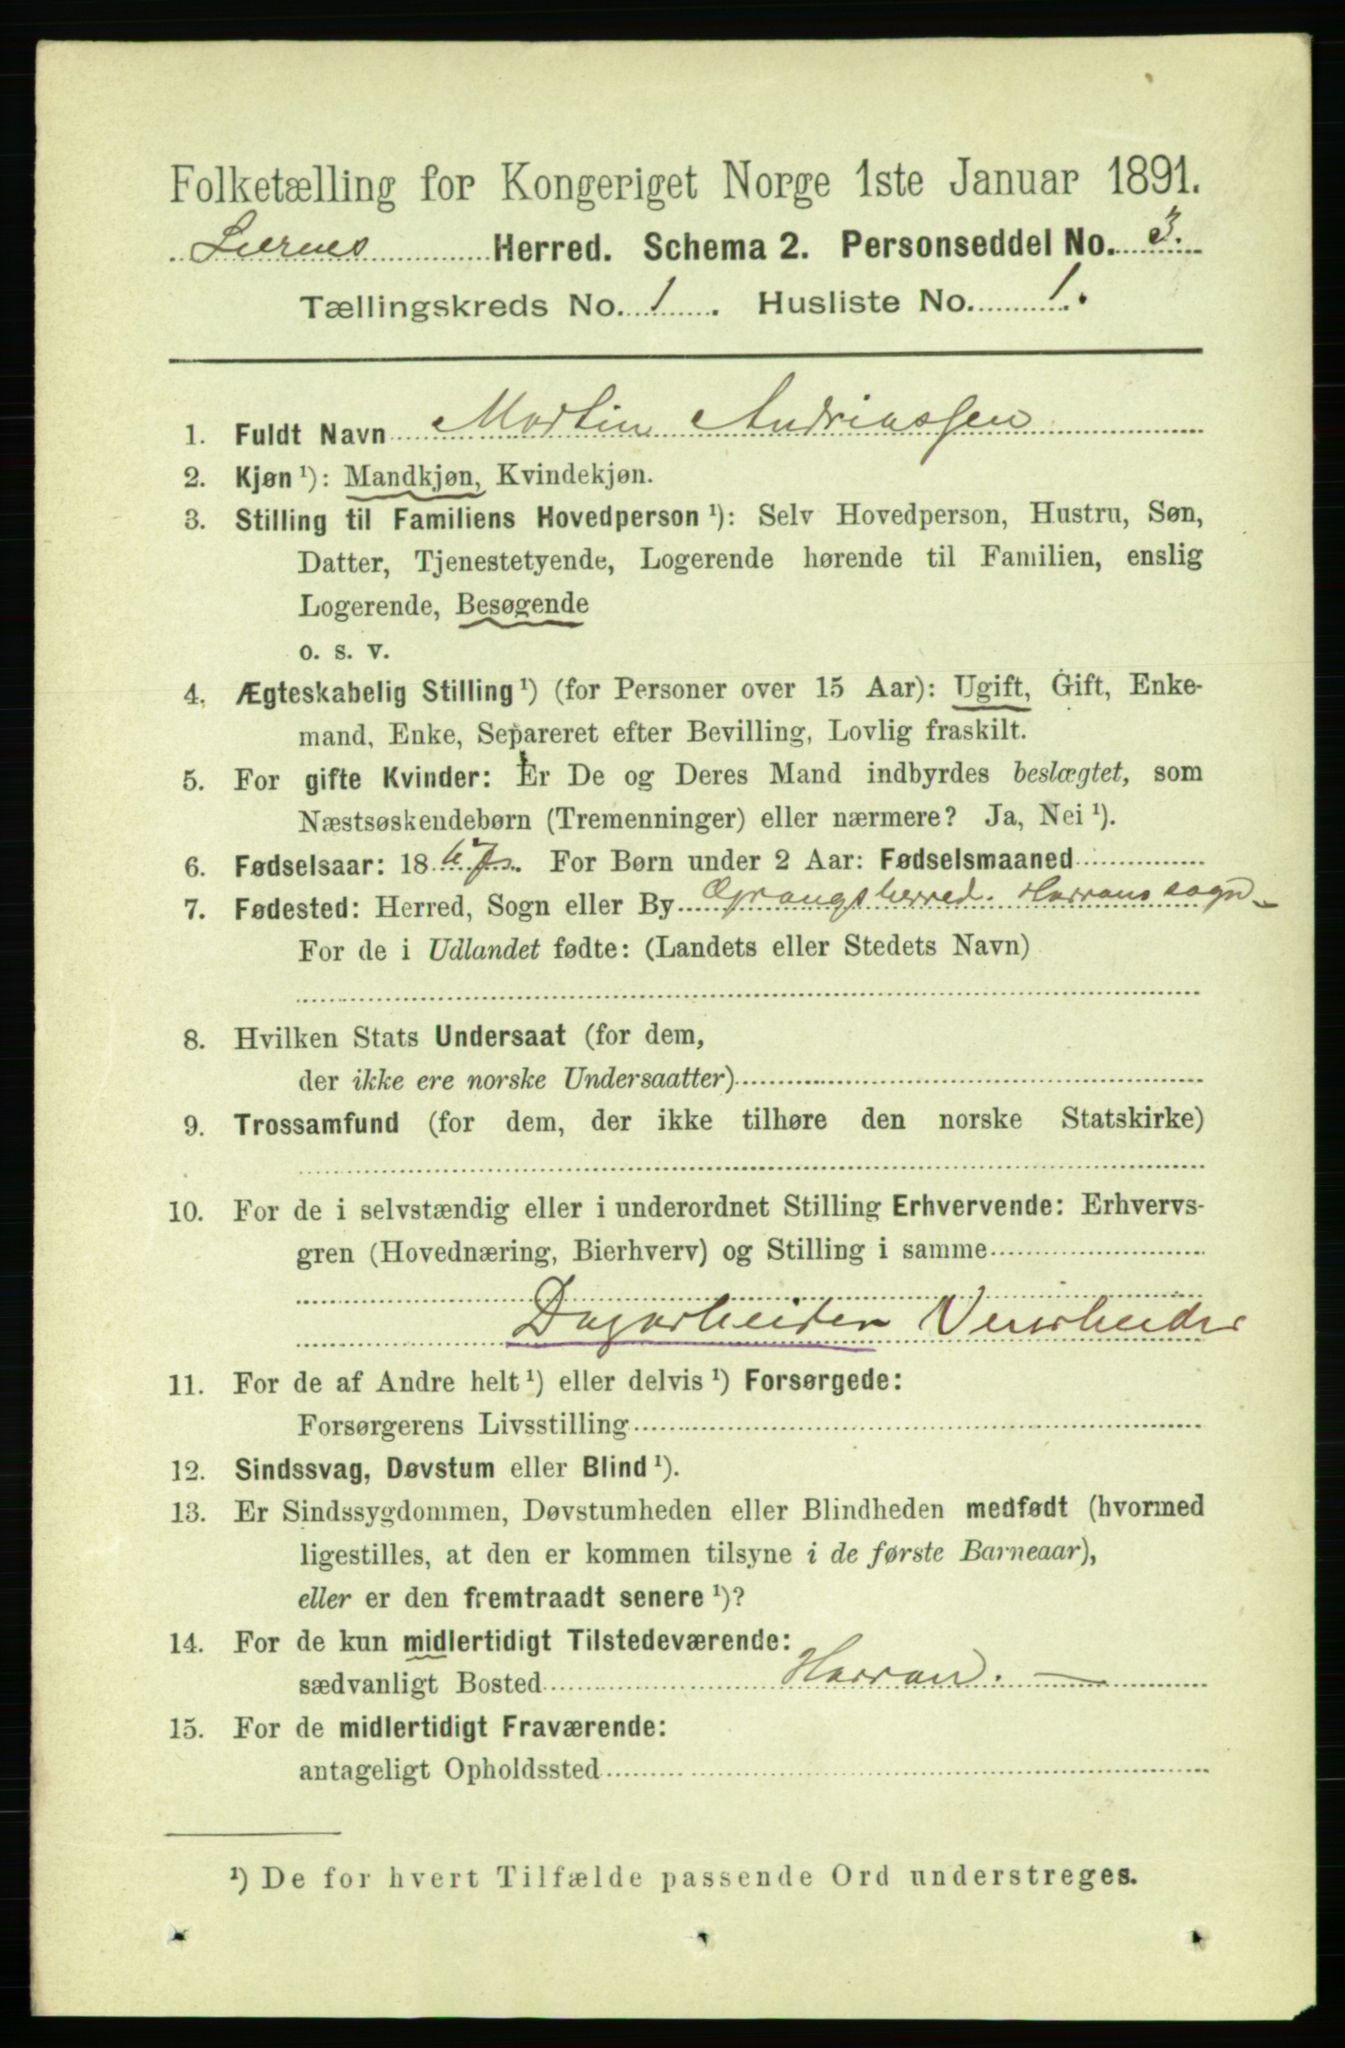 Folketælling for Kongeriget Norge 1ste Januar 1891.
Lierne Herred. Schema 2. Personseddel No. 3.
Tællingskreds No. 1. Husliste No. 1.
1. Fuldt Navn Martin Andriassen
2. Kjøn ¹): Mandkjøn, Kvindekjøn.
3. Stilling til Familiens Hovedperson ¹): Selv Hovedperson, Hustru, Søn,
Datter, Tjenestetyende, Logerende hørende til Familien, enslig
Logerende, Besøgende
o. s. v.
4. Ægteskabelig Stilling ¹) (for Personer over 15 Aar): Ugift, Gift, Enke-
mand, Enke, Separeret efter Bevilling, Lovlig fraskilt.
5. For gifte Kvinder: Er De og Deres Mand indbyrdes beslægtet, som
Næstsøskendebørn (Tremenninger) eller nærmere? Ja, Nei ¹).
6. Fødselsaar: 1867. For Børn under 2 Aar: Fødselsmaaned
7. Fødested: Herred, Sogn eller By Grongsherred. Harrans sogn
For de i Udlandet fødte: (Landets eller Stedets Navn)
8. Hvilken Stats Undersaat (for dem,
der ikke ere norske Undersaatter)
9. Trossamfund (for dem, der ikke tilhøre den norske Statskirke)
10. For de i selvstændig eller i underordnet Stilling Erhvervende: Erhvervs-
gren (Hovednæring, Bierhverv) og Stilling i samme
Dagarbeider Veiarbeider
11. For de af Andre helt ¹) eller delvis ¹) Forsørgede:
Forsørgerens Livsstilling
12. Sindssvag, Døvstum eller Blind ¹).
13. Er Sindssygdommen, Døvstumheden eller Blindheden medfødt (hvormed
ligestilles, at den er kommen tilsyne i de første Barneaar),
eller er den fremtraadt senere ¹)?
14. For de kun midlertidigt Tilstedeværende:
sædvanligt Bosted Harran.
15. For de midlertidigt Fraværende:
antageligt Opholdssted
¹) De for hvert Tilfælde passende Ord understreges.